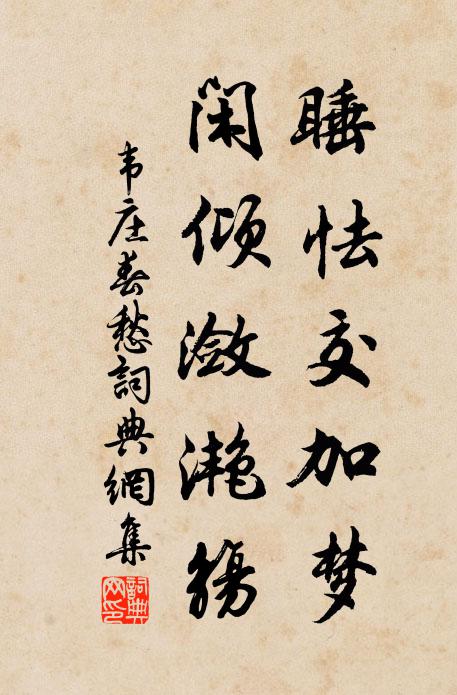 睡怯交加梦
闲倾潋滟觞
韦庄春愁詞典網集
詞典网印